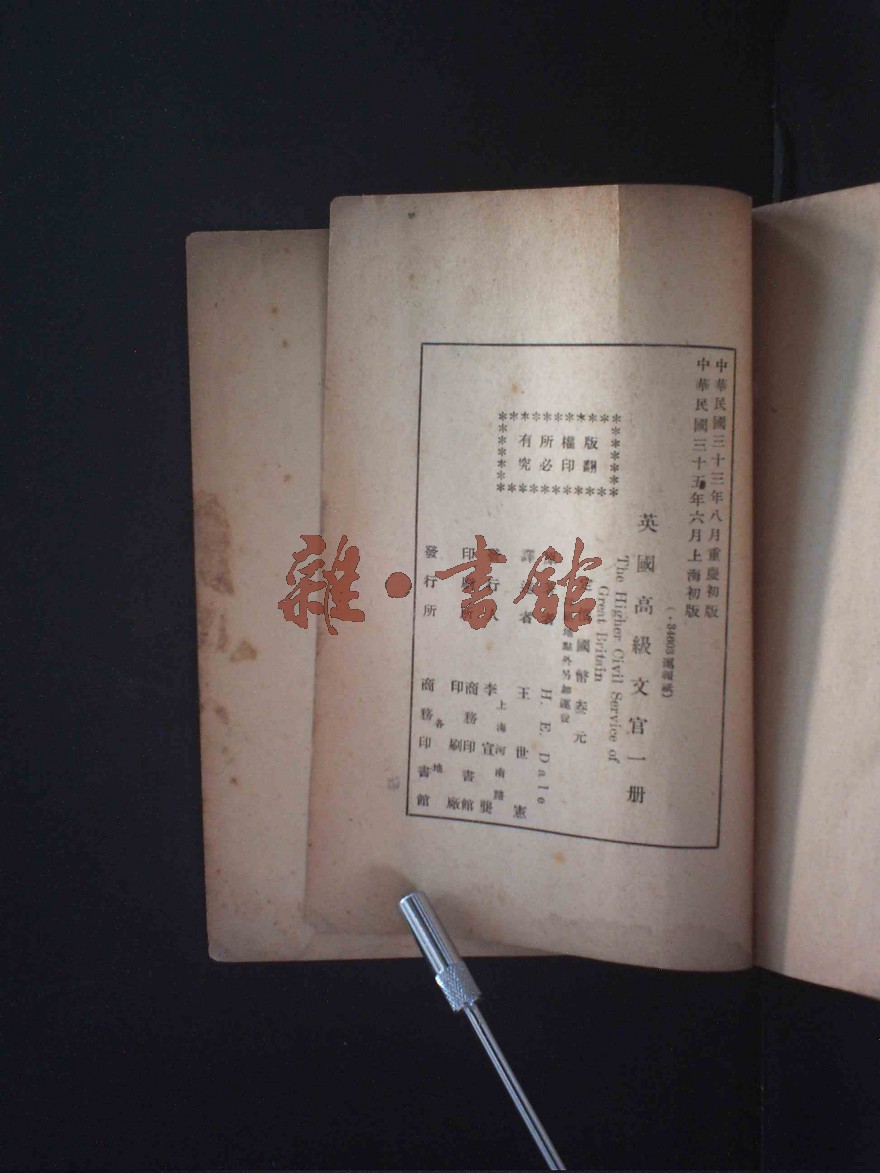 中華民國三十三年八月重慶初版
中華民國三十五年六月上海初版
英國高級文官一册
The Higher Civil Service of
Great Britain
國幣叁元
地點外另加運費
版權所有
翻印必究
H. E. Dale
譯 者 王世憲
行人 李宣龔
上海河南路
印刷所 商務印書館
印刷廠
發行所 商務印書館
各地
雜·書館